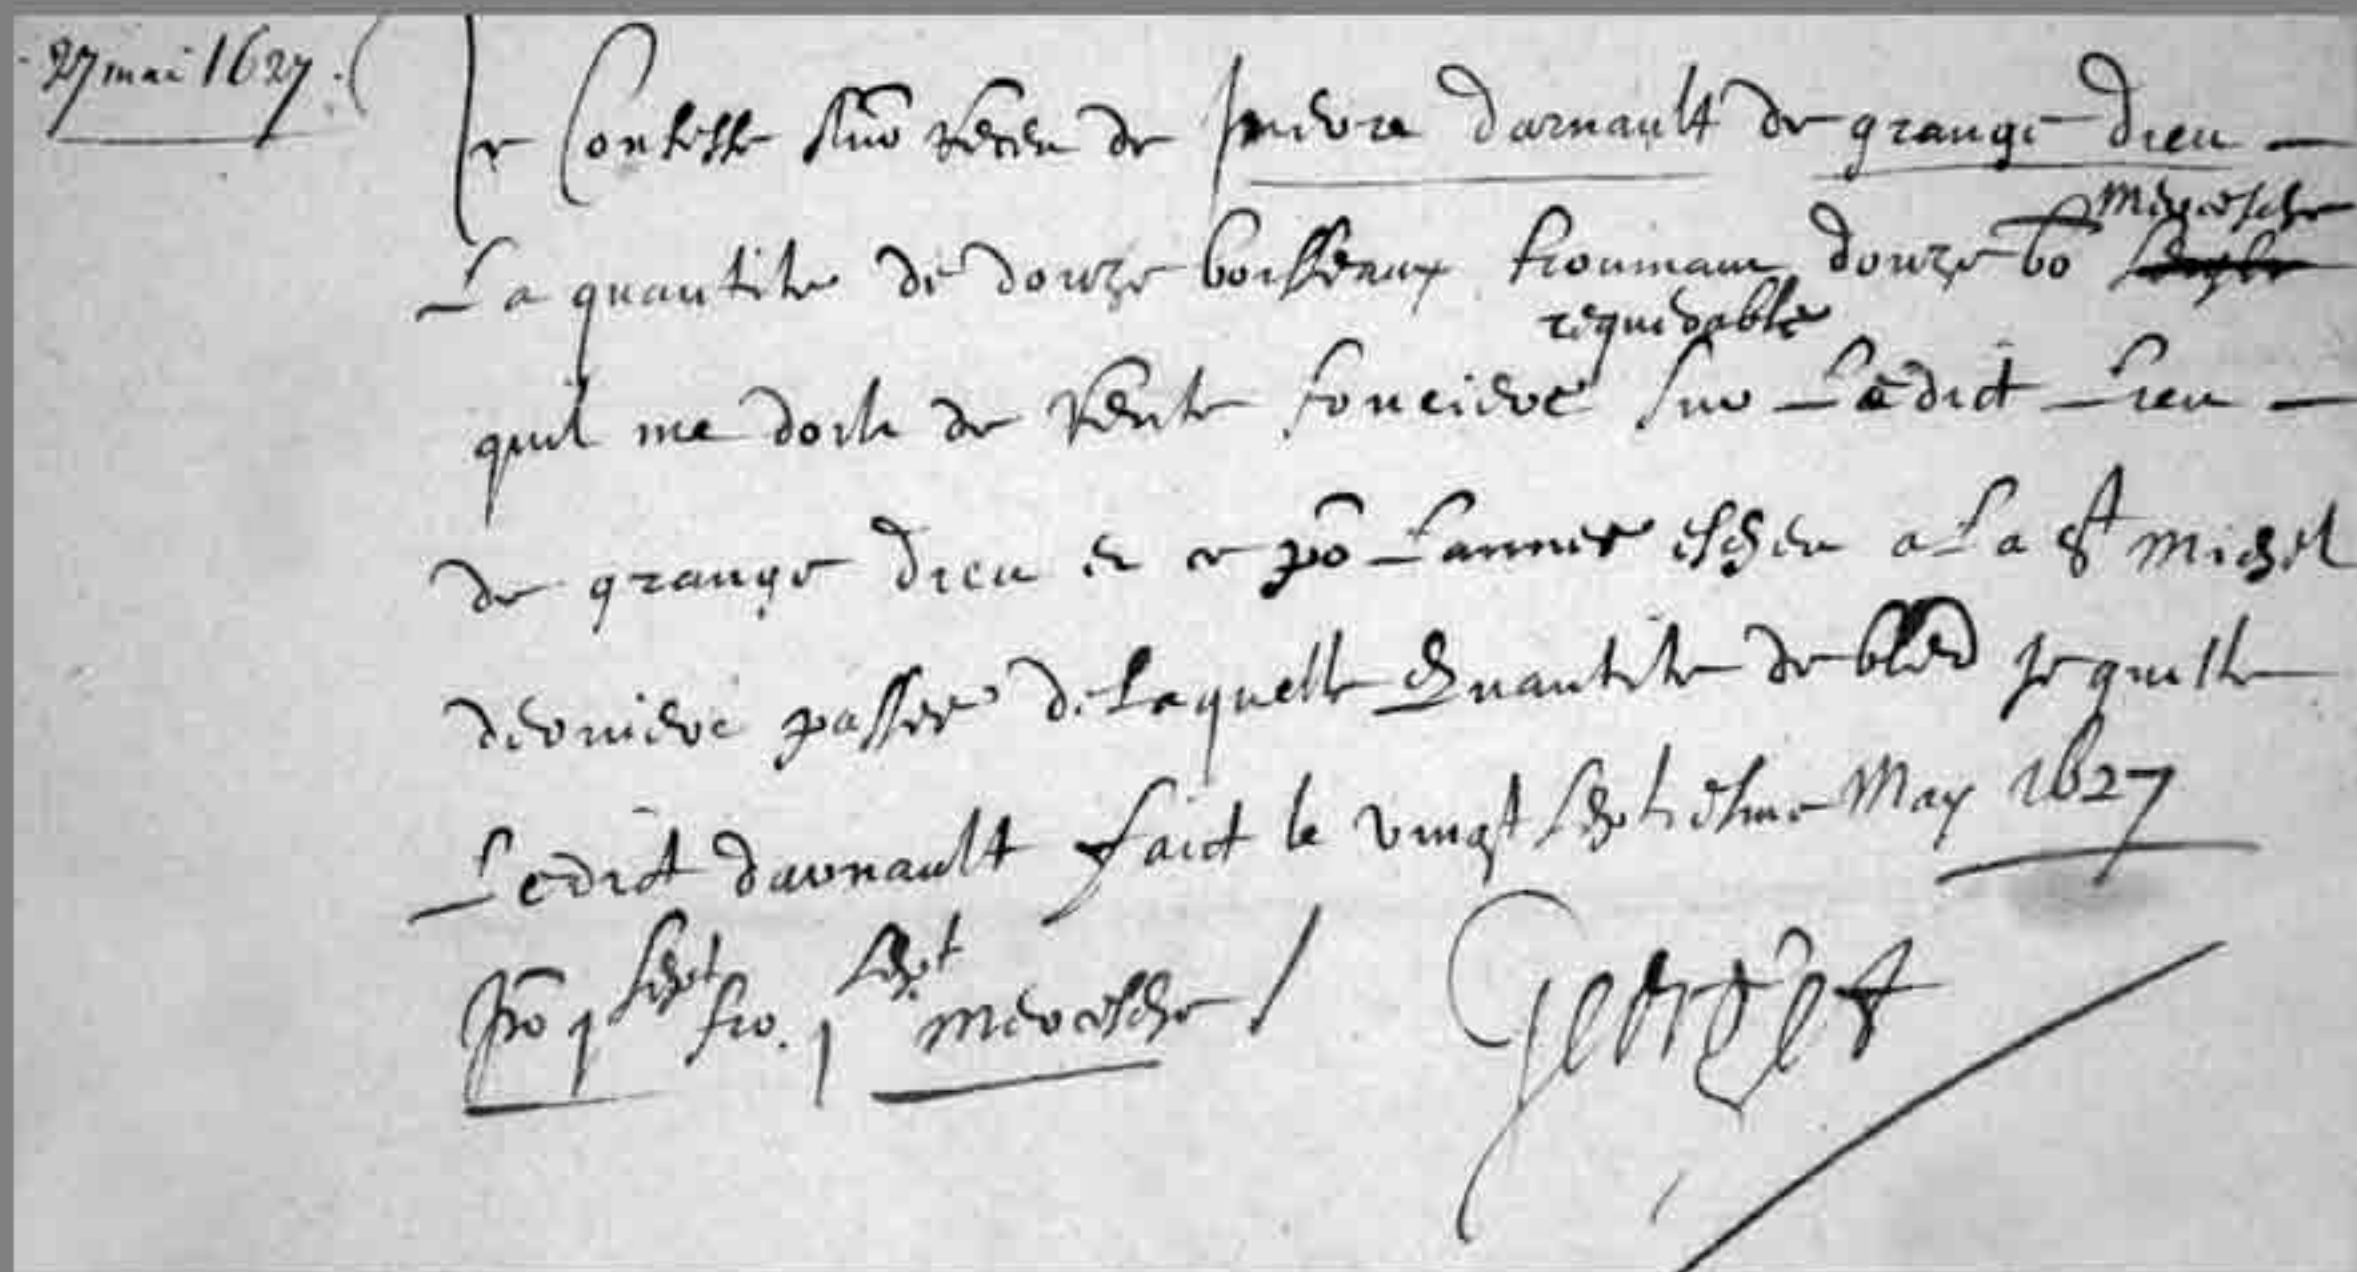 27 mai 1627
Je Confesse avoir Receu de darnault de grange dieu
La quantite de douze boisseaux froumant douze bo mesresche
requerable
quil me doibt de Rente fonciere sur Ledict Lieu
de grange dieu et ce po Lannee escheu a La St Michel
derniere passee de Laquelle Quantite de bled Je quitte
Ledict darnault faict le vingt septiesme May 1627
po 1 sept fro. 1 sept mesresche
Georget